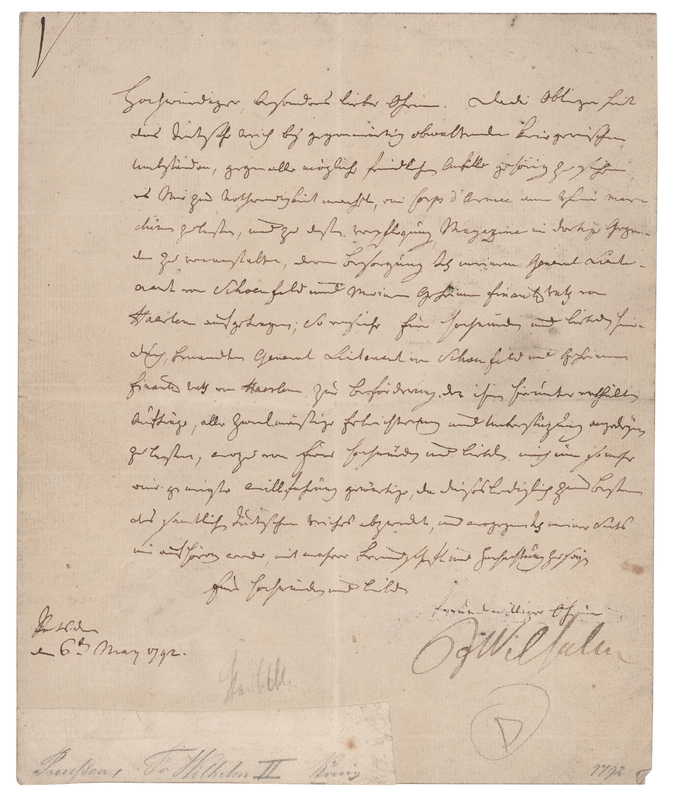 Hochwürdiger, besonders lieber Oheim. Da die Obliegenheit
das Deutsche Reich bey gegenwärtig obwaltenden kriegerischen
Umständen, gegen alle mögliche feindliche Anfälle gehörig zu
es Mir zur Nothwendigkeit macht, ein Corps d'Armee am Rhein mar-
chiren zu lassen, und zu dessen Verpflegung Magazine in dortige Gegen-
den zu veranstalten, deren Besorgung Ich meinem General Lieute-
nant von Schoenfeld und Meinem Geheimen Finantz Rath von
Haerlem aufgetragen; so ersuche Euer Hochwürden und Liebden
General Lieutenant von Schoenfeld und Geheimen
Finantz Rath von Haerlem zur Beförderung der ihnen hierunter ertheilten
Aufträge, alle zweckmässige Erleichterung und Unterstützung angedeyen
zu lassen, wozu von Euer Hochwürden und Liebden mich um so mehr
eine geneigte Willfahrung gewärtige, da dieses lediglich zum Besten
des sämtlichen Deutschen Reiches abzwecket, und wogegen Ich meiner Seits
nie aufhören werde, mit wahrer Freundschaft und Hochachtung zu seyn
Euer Hochwürden und Liebden
freundwilliger Oheim
FWilhelm
Potsdam
den 6ten May 1792.
D
Preußen, Fr. Wilhelm II König
1792